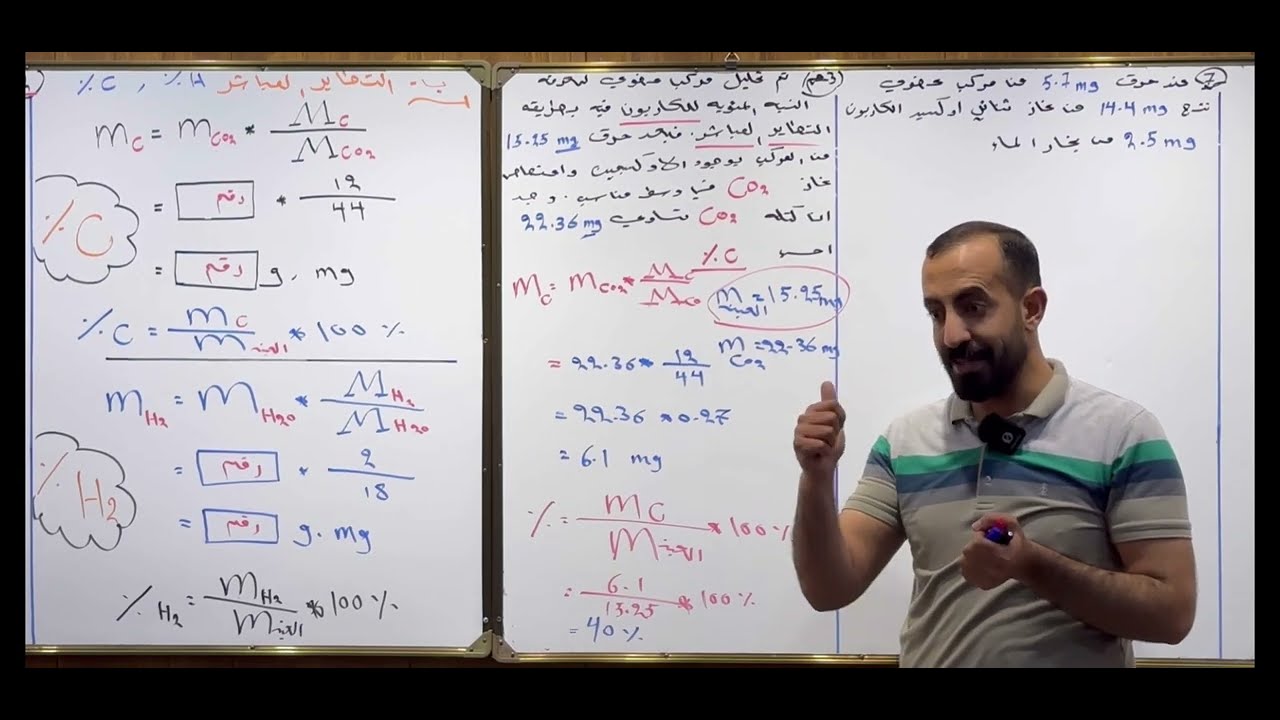 ب- التطاير المباشر %C , %H
mC = mCO2 * MC / MCO2
= رقم * 12 / 44
= رقم g. mg
%C
%C = mC / m العينة * 100 %
mH2 = mH2O * MH2 / MH2O
= رقم * 2 / 18
= رقم g. mg
%H2
%H2 = mH2 / m العينة * 100 %
(3 هم) تم تحليل مركب عضوي لمعرفة
النسبه المئويه للكاربون فيه بطريقه
التطاير المباشر. فبعد حرق 15.25 mg
من المركب بوجود الاوكسجين وامتصاص
غاز CO2 في وسط مناسب. وجد
ان كتله CO2 تساوي 22.36 mg
احسب
%C
mC = mCO2 * MC / MCO
m العينة = 15.25 mg
mCO2 = 22.36 mg
= 22.36 * 12 / 44
= 22.36 * 0.27
= 6.1 mg
% = mC / m العينة * 100 %
= 6.1 / 15.25 * 100 %
= 40 %
7 عند حرق 5.7 mg من مركب عضوي
نتج 14.4 mg من غاز ثنائي اوكسيد الكاربون
2.5 mg من بخار الماء